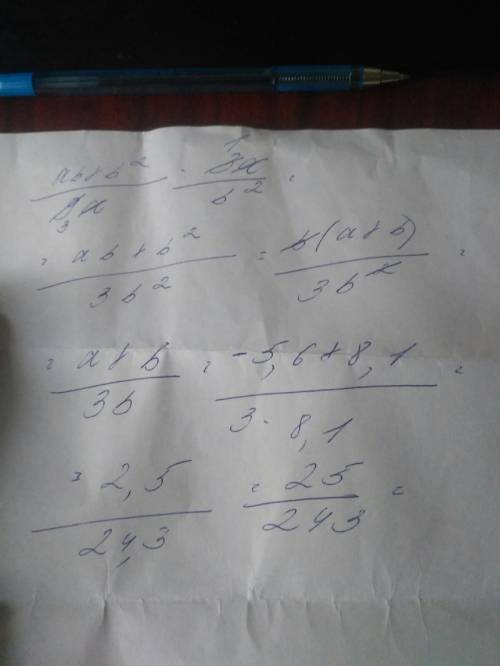 (ab+b²)/(9a) · (3a)/(b²) =
= (ab+b²)/(3b²) = (b(a+b))/(3b²) =
= (a+b)/(3b) = (-5,6+8,1)/(3·8,1) =
= 2,5/24,3 = 25/243 =